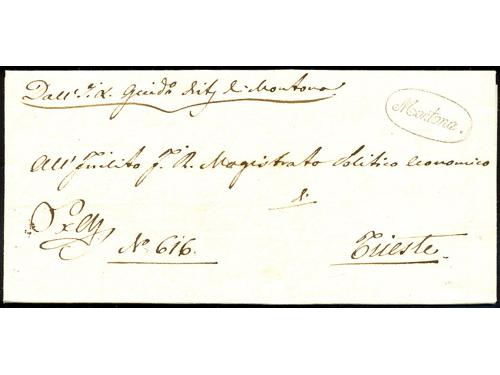 Dall' I. R. Giud.º Distl. di Montona
Montona.
All' Inclito I. R. Magistrato Politico economico
di
Ex Off
Nº 616.
Trieste.